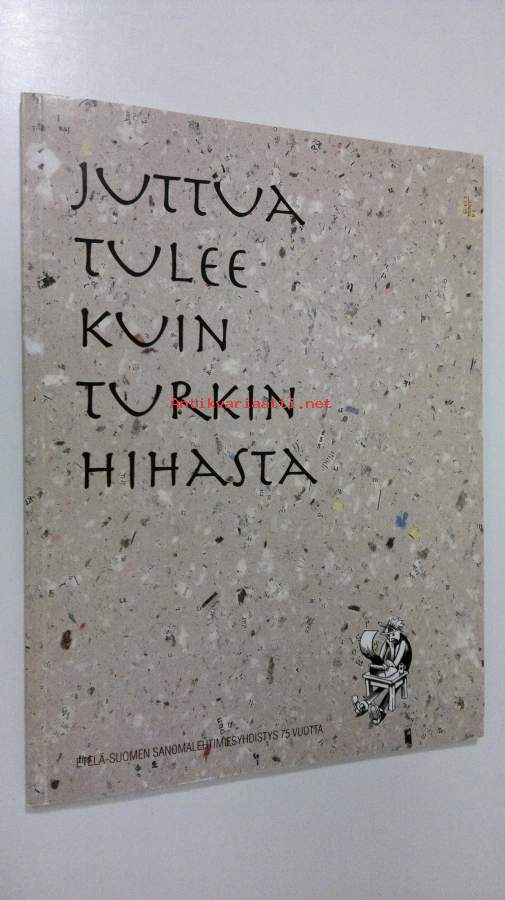 JUTTUA
TULEE
KUIN
TURKIN
Antikvariaatti.net
HIHASTA
ETELÄ-SUOMEN SANOMALEHTIMIESYHDISTYS 75 VUOTTA